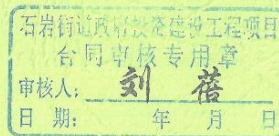 石岩街道政府投资建设工程项目
合同审核专用章
审核人：刘蓓
日期： 年 月 日